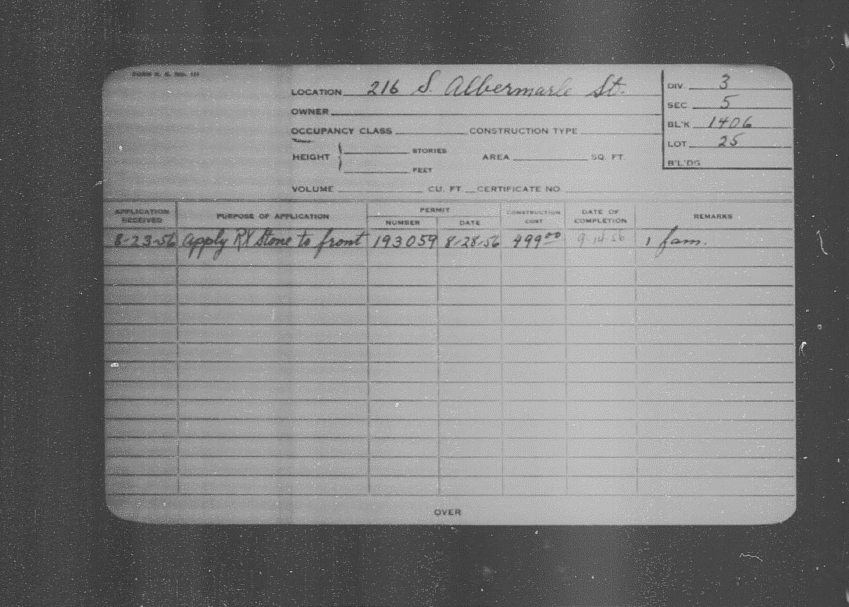 FORM
LOCATION 216 S. Albermarle St.
OWNER
OCCUPANCY CLASS CONSTRUCTION TYPE
HEIGHT { STORIES AREA SQ. FT.
FEET
VOLUME CU. FT. CERTIFICATE NO.
DIV. 3
SEC. 5
BL'K 1406
LOT 25
B'L'DG
APPLICATION RECEIVED PURPOSE OF APPLICATION PERMIT NUMBER DATE CONSTRUCTION COST DATE OF COMPLETION REMARKS
8-23-56 apply RX Stone to front 193059 8-28-56 499.00 9-14-56 1 fam.
OVER